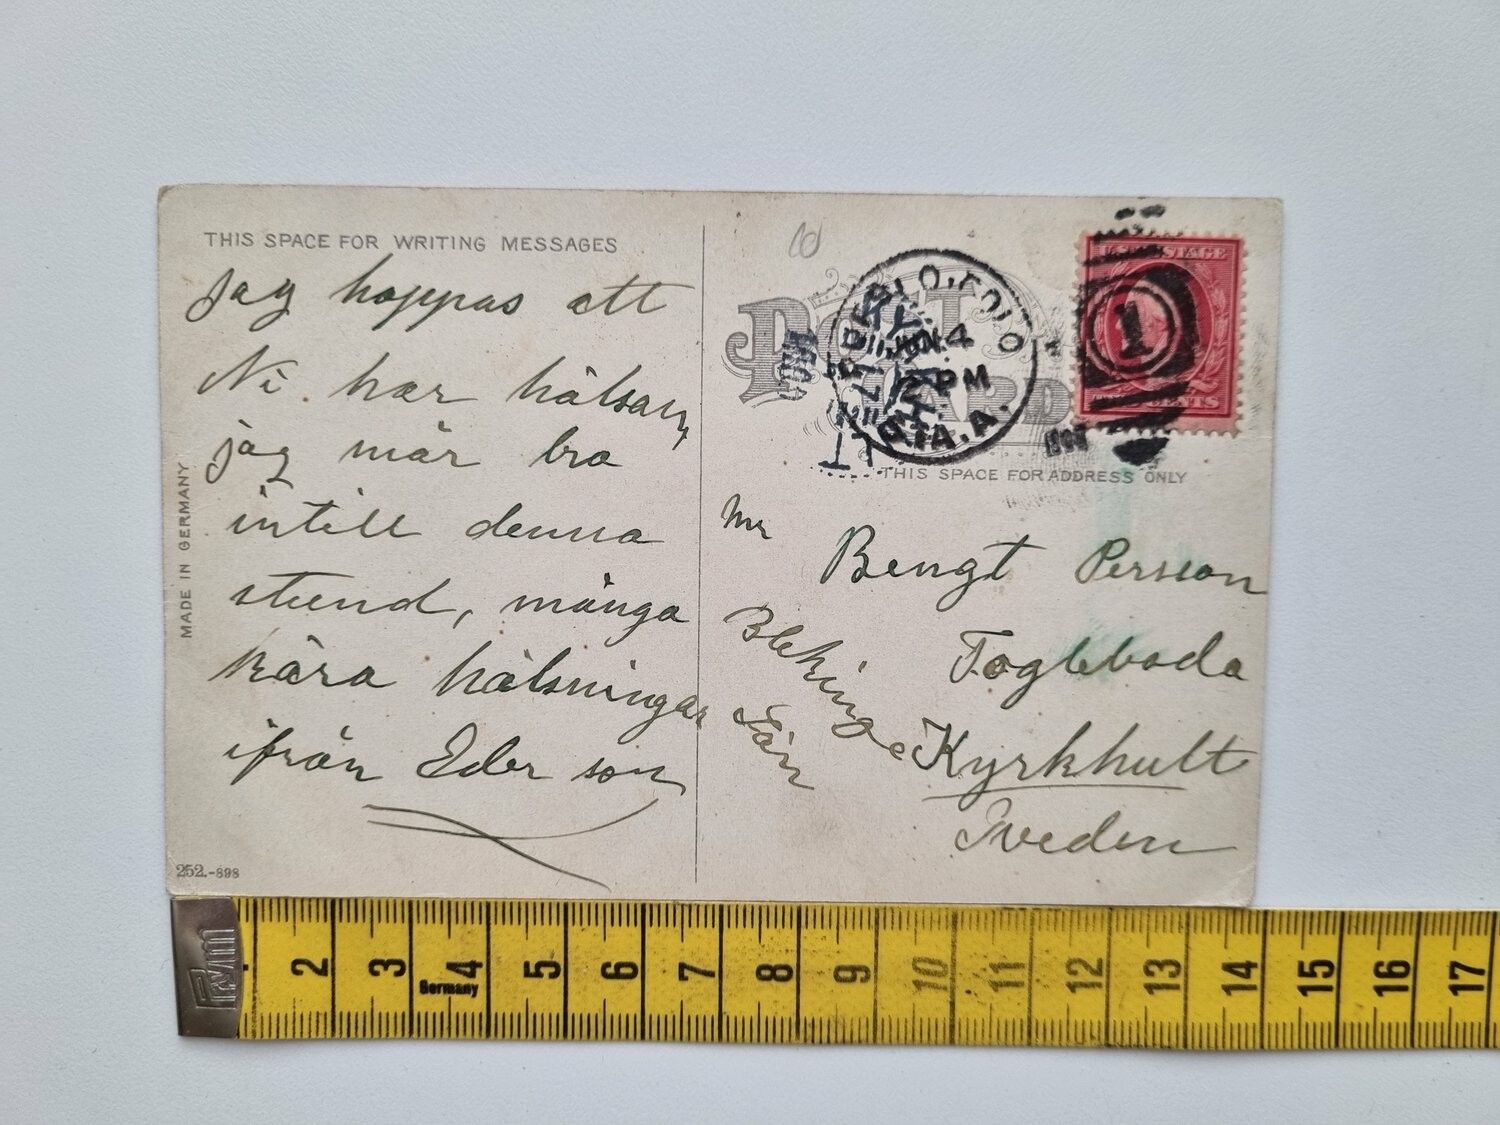 THIS SPACE FOR WRITING MESSAGES
Jag hoppas att
Ni har hälsan,
jag mår bra
intill denna
stund, många
kära hälsningar
ifrån Eder son
MADE IN GERMANY
252.-898
POST CARD
PUEBLO, COLO
4
PM
U.S. POSTAGE
1
TWO CENTS
THIS SPACE FOR ADDRESS ONLY
Mr
Bengt Persson
Fogleboda
Blekinge
Län
Kyrkhult
Sweden
Germany
2 3 4 5 6 7 8 9 10 11 12 13 14 15 16 17